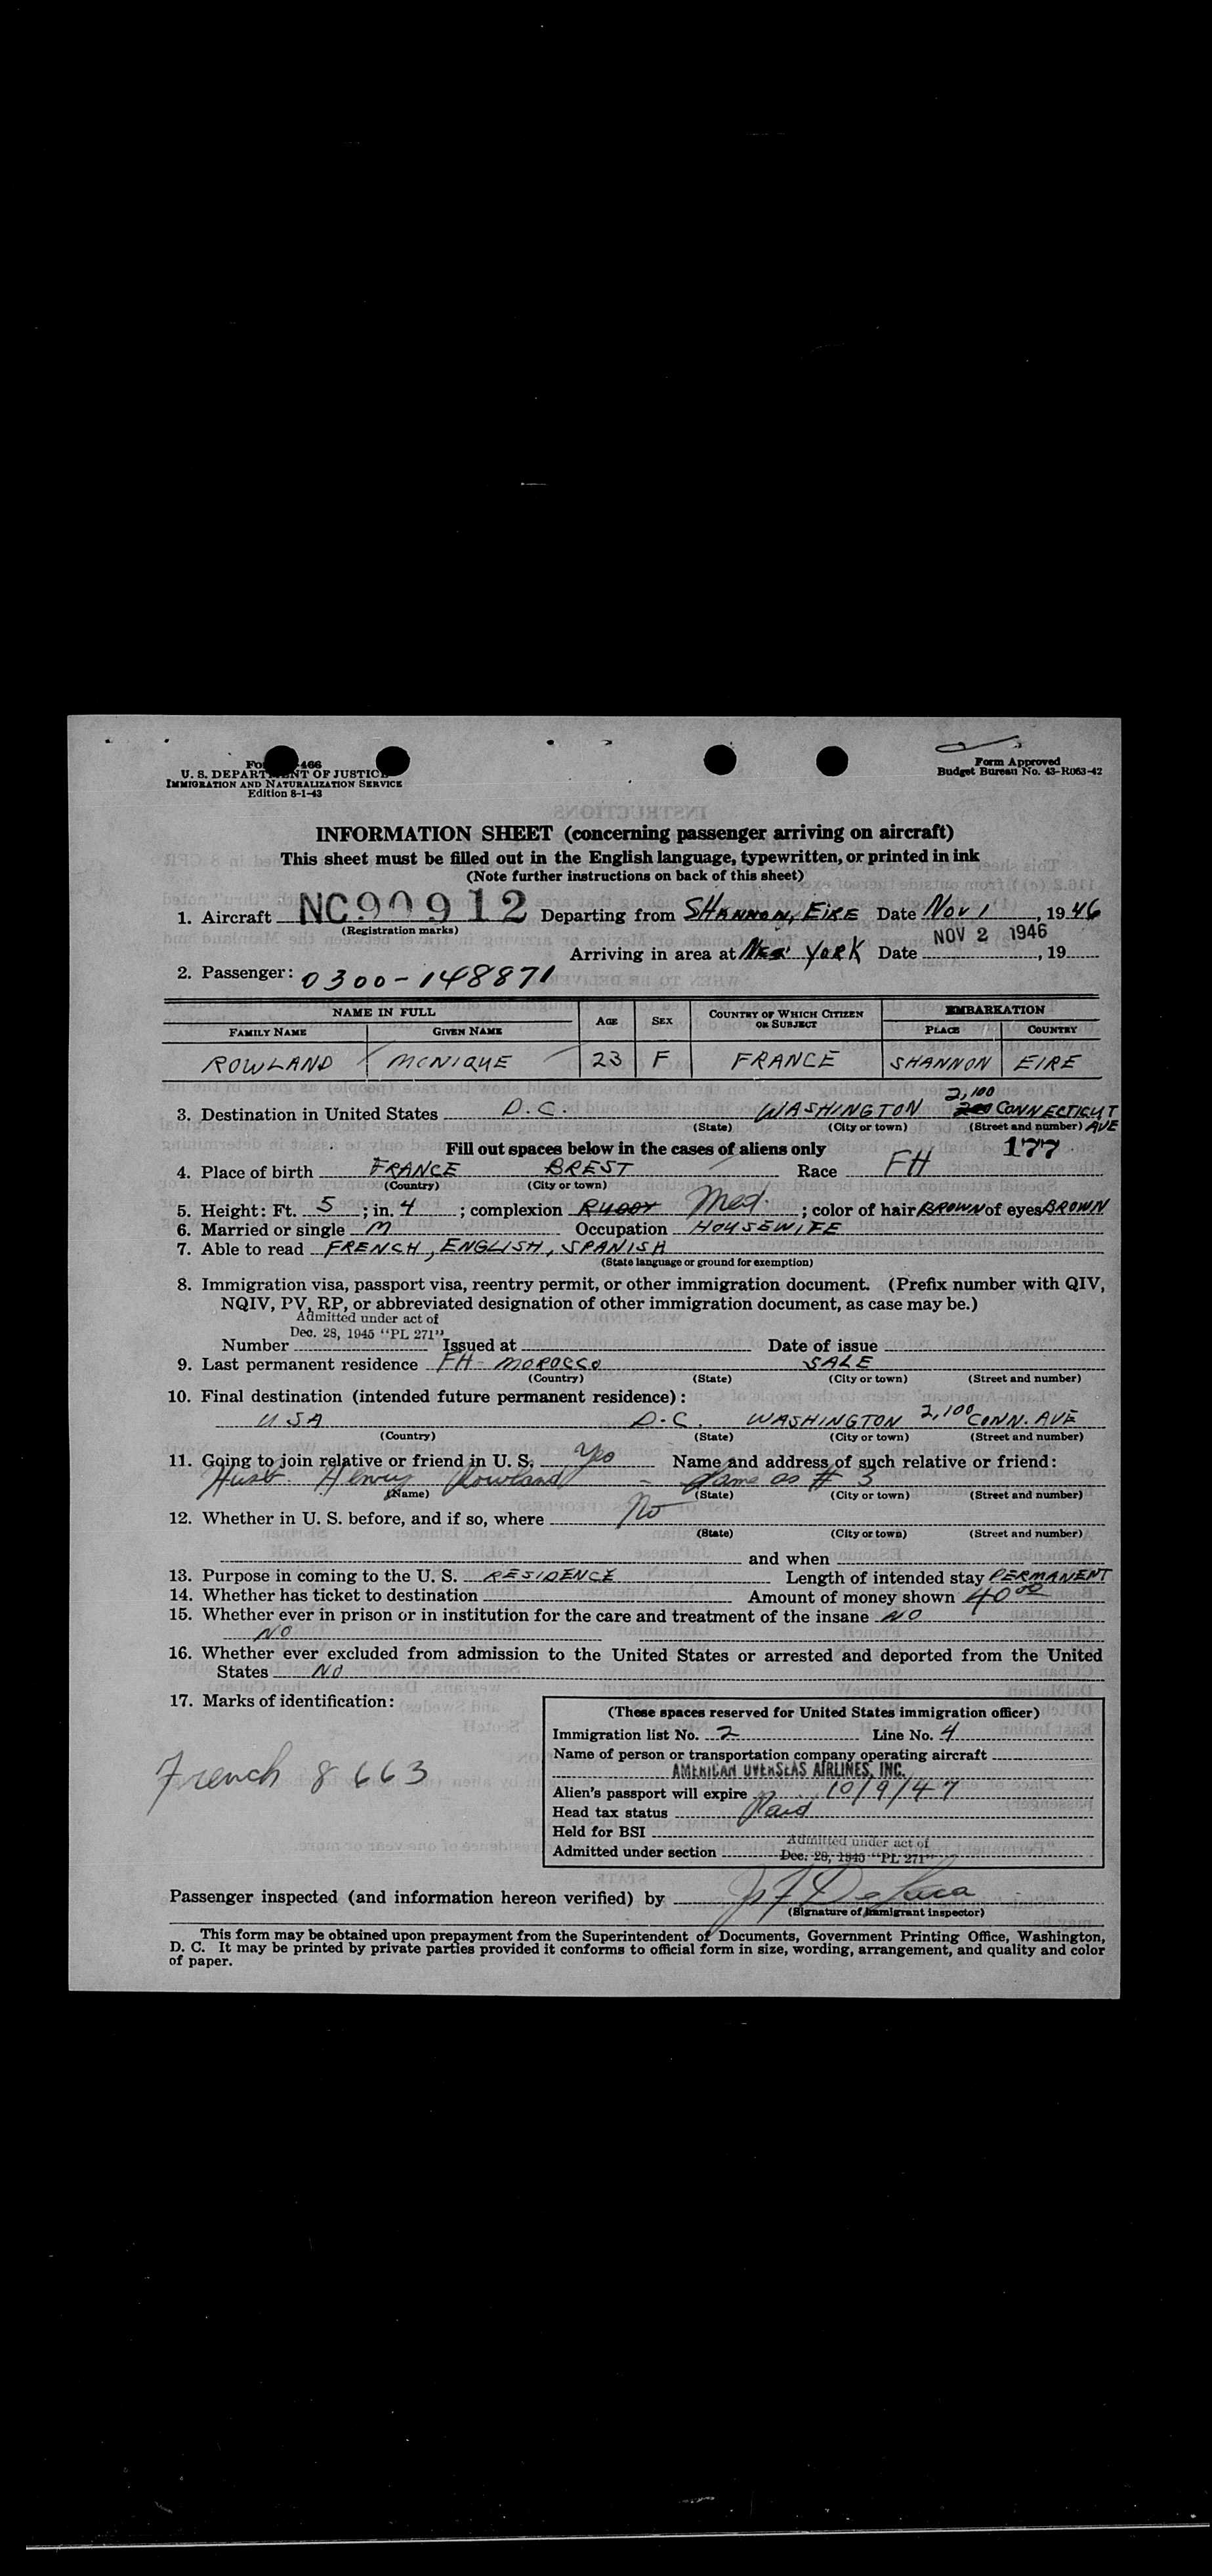 Form Approved
Budget Bureau No. 43-R063-42
U. S. DEPARTMENT OF JUSTICE
IMMIGRATION AND NATURALIZATION SERVICE
Edition 8-1-43
INFORMATION SHEET (concerning passenger arriving on aircraft)
This sheet must be filled out in the English language, typewritten, or printed in ink
(Note further instructions on back of this sheet)
1. Aircraft NC90912 Departing from SHANNON, EIRE Date NOV 1, 1946
(Registration marks)
Arriving in area at NEW YORK Date NOV 2 1946, 19
2. Passenger: 0300-148871
NAME IN FULL AGE SEX COUNTRY OF WHICH CITIZEN OR SUBJECT EMBARKATION
FAMILY NAME GIVEN NAME PLACE COUNTRY
ROWLAND MONIQUE 23 F FRANCE SHANNON EIRE
3. Destination in United States D.C. WASHINGTON 2,100 CONNECTICUT AVE
(State) (City or town) (Street and number)
Fill out spaces below in the cases of aliens only 177
4. Place of birth FRANCE BREST Race FH
(Country) (City or town)
5. Height: Ft. 5; in. 4; complexion RUDDY Med.; color of hair BROWN of eyes BROWN
6. Married or single M Occupation HOUSEWIFE
7. Able to read FRENCH, ENGLISH, SPANISH
(State language or ground for exemption)
8. Immigration visa, passport visa, reentry permit, or other immigration document. (Prefix number with QIV,
NQIV, PV, RP, or abbreviated designation of other immigration document, as case may be.)
Admitted under act of
Dec. 28, 1945 "PL 271"
Number Issued at Date of issue
9. Last permanent residence FH- MOROCCO SALE
(Country) (State) (City or town) (Street and number)
10. Final destination (intended future permanent residence):
USA D.C. WASHINGTON 2,100 CONN. AVE
(Country) (State) (City or town) (Street and number)
11. Going to join relative or friend in U. S. Yes Name and address of such relative or friend:
Husb. Henry Rowland - Same as # 3
(Name) (State) (City or town) (Street and number)
12. Whether in U. S. before, and if so, where No
(State) (City or town) (Street and number)
and when
13. Purpose in coming to the U. S. RESIDENCE Length of intended stay PERMANENT
14. Whether has ticket to destination Amount of money shown 40.00
15. Whether ever in prison or in institution for the care and treatment of the insane NO
NO
16. Whether ever excluded from admission to the United States or arrested and deported from the United
States NO
17. Marks of identification:
French 8663
(These spaces reserved for United States immigration officer)
Immigration list No. 2 Line No. 4
Name of person or transportation company operating aircraft
AMERICAN OVERSEAS AIRLINES, INC.
Alien's passport will expire 10/9/47
Head tax status Paid
Held for BSI
Admitted under act of
Admitted under section Dec. 28, 1945 "PL 271"
Passenger inspected (and information hereon verified) by
(Signature of immigrant inspector)
This form may be obtained upon prepayment from the Superintendent of Documents, Government Printing Office, Washington,
D. C. It may be printed by private parties provided it conforms to official form in size, wording, arrangement, and quality and color
of paper.